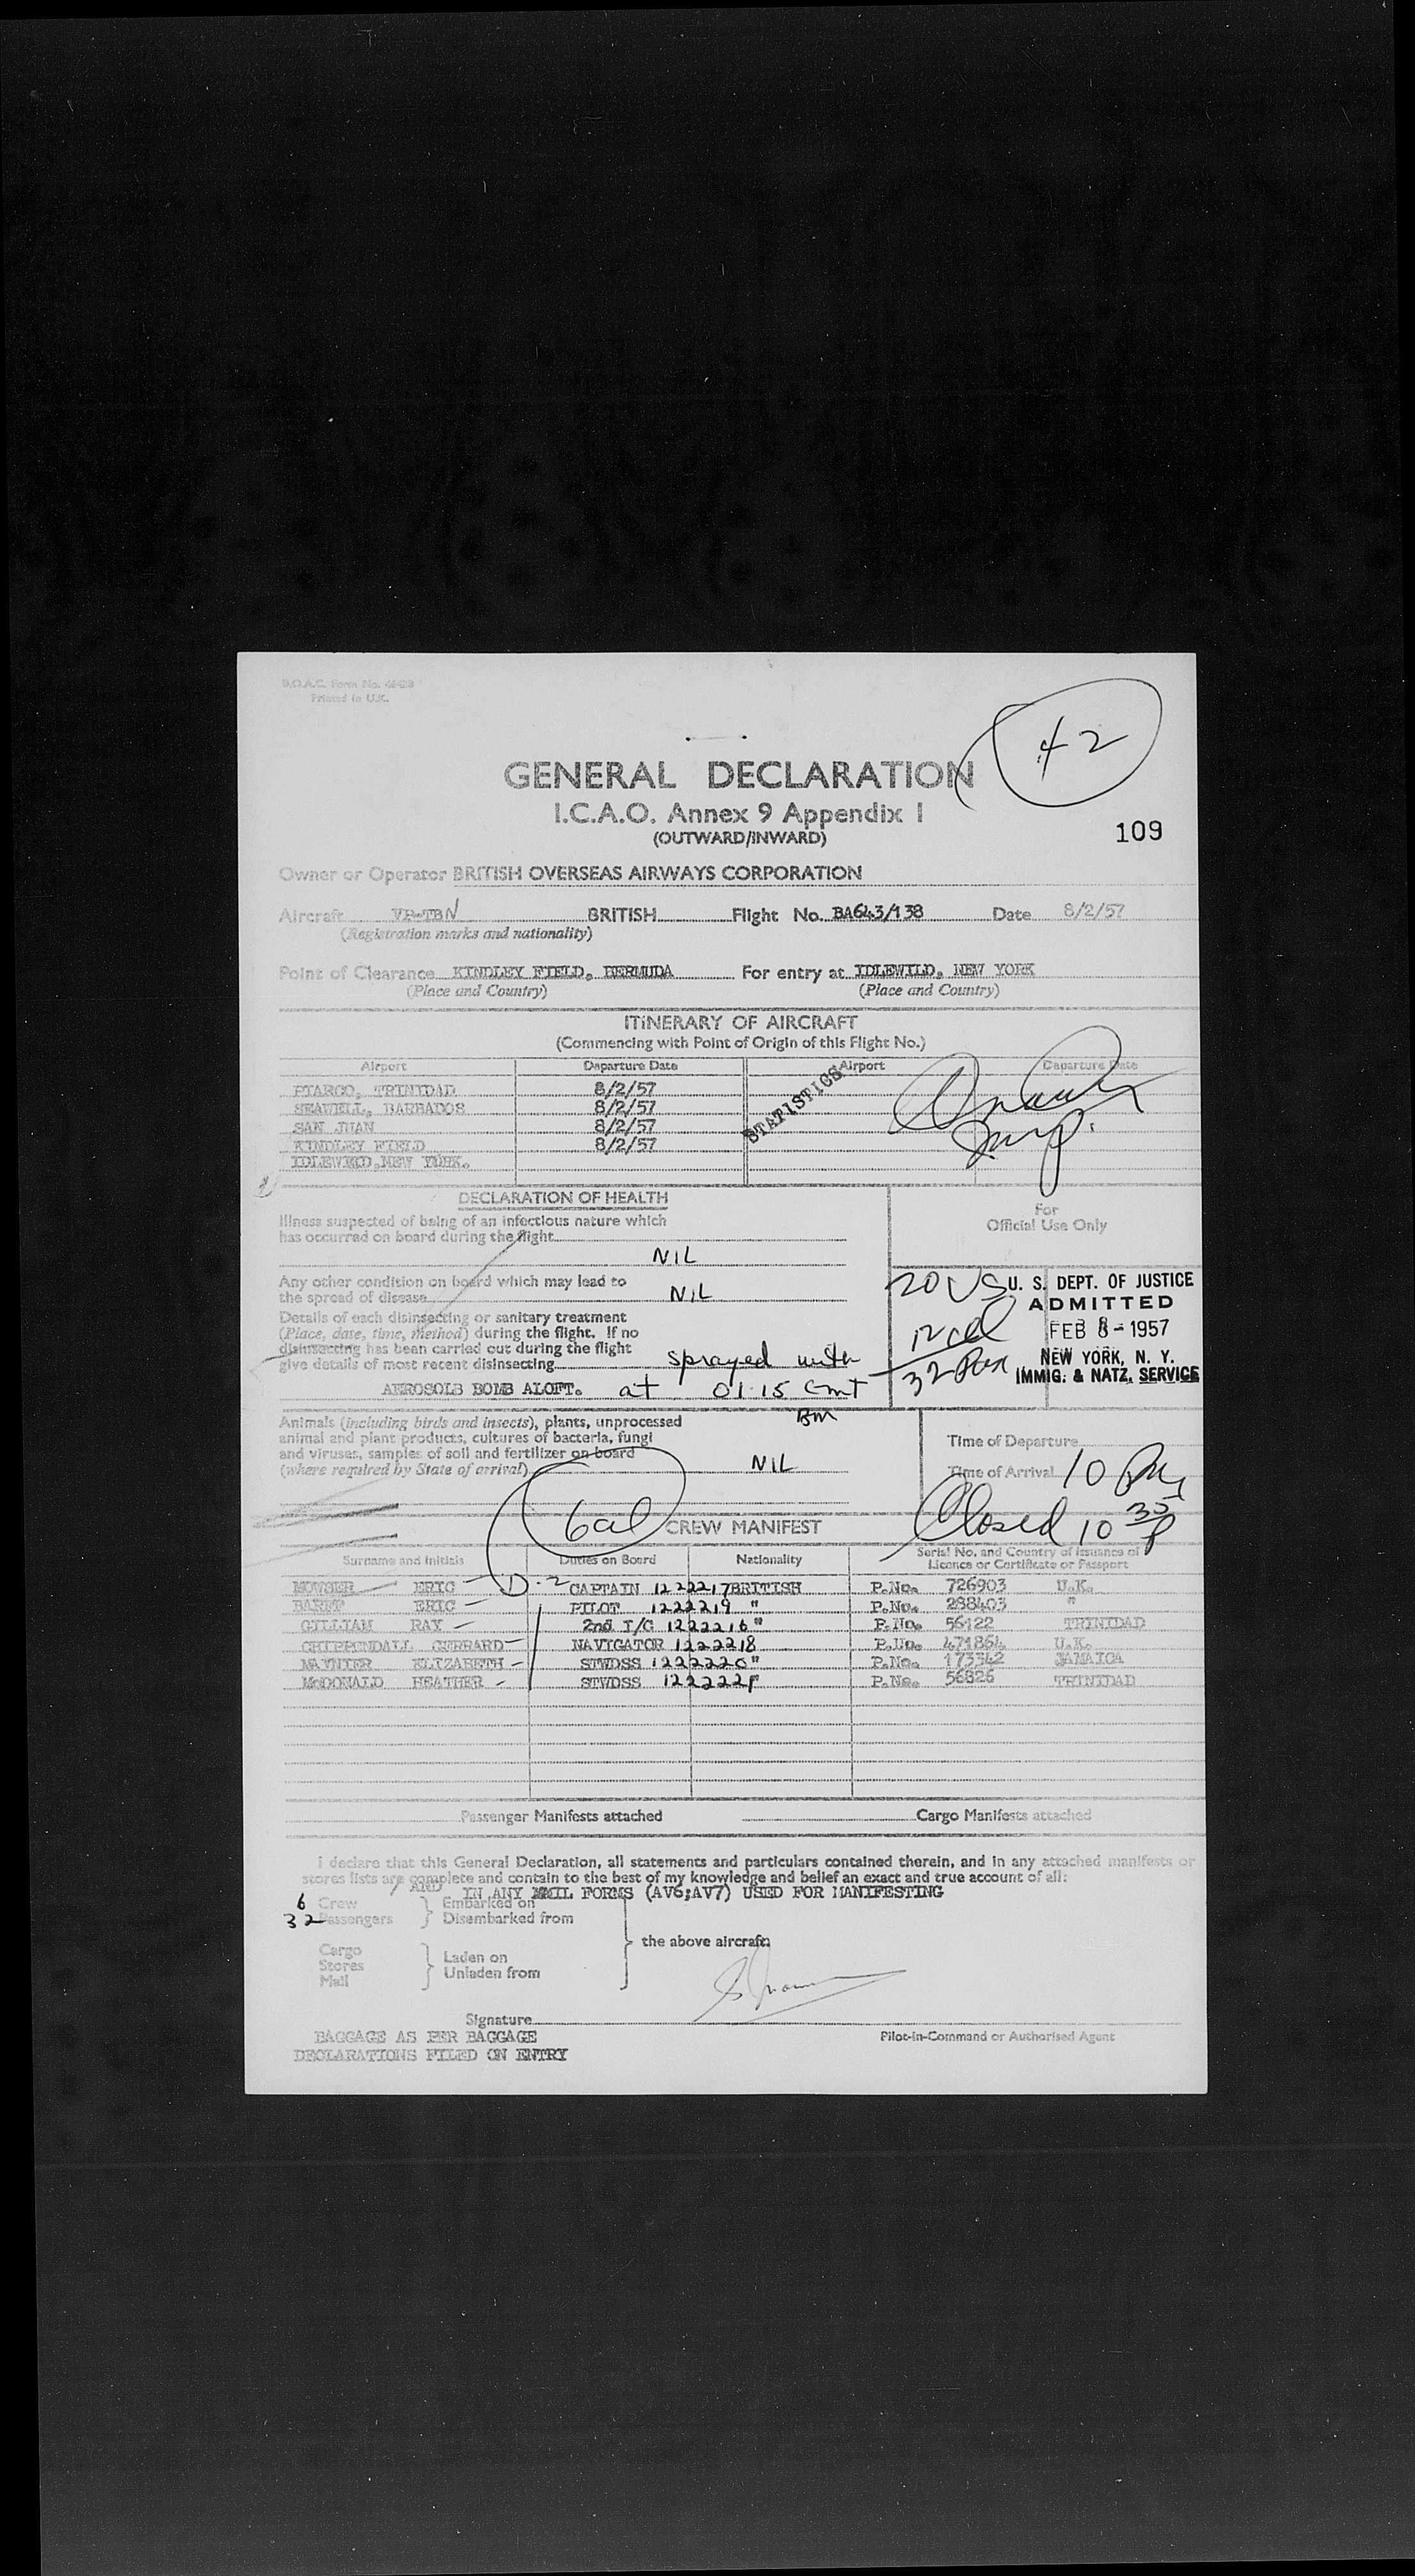 B.O.A.C. Form No.
Printed in U.K.
42
GENERAL DECLARATION
I.C.A.O. Annex 9 Appendix 1
(OUTWARD/INWARD)
109
Owner or Operator BRITISH OVERSEAS AIRWAYS CORPORATION
Aircraft VP-TBN BRITISH Flight No. BA643/138 Date 8/2/57
(Registration marks and nationality)
Point of Clearance KINDLEY FIELD, BERMUDA For entry at IDLEWILD, NEW YORK
(Place and Country) (Place and Country)
ITINERARY OF AIRCRAFT
(Commencing with Point of Origin of this Flight No.)
Airport Departure Date Airport Departure Date
PIARCO, TRINIDAD 8/2/57
SEAWELL, BARBADOS 8/2/57
SAN JUAN 8/2/57
KINDLEY FIELD 8/2/57
NEW YORK.
STATISTICS
DECLARATION OF HEALTH
For
Official Use Only
Illness suspected of being of an infectious nature which
has occurred on board during the flight
NIL
Any other condition on board which may lead to
the spread of disease NIL
Details of each disinsecting or sanitary treatment
(Place, date, time, method) during the flight. If no
disinsecting has been carried out during the flight
give details of most recent disinsecting sprayed with
AEROSOLS BOMB ALOFT. at 01.15 GMT
20 US
12 al
32 Pax
U. S. DEPT. OF JUSTICE
ADMITTED
FEB 8 - 1957
NEW YORK, N. Y.
IMMIG. & NATZ. SERVICE
Animals (including birds and insects), plants, unprocessed
animal and plant products, cultures of bacteria, fungi
and viruses, samples of soil and fertilizer on board
(where required by State of arrival) NIL
Time of Departure
Time of Arrival 10 Pm
Closed 10 35 P
6 al
CREW MANIFEST
Surname and Initials Duties on Board Nationality Serial No. and Country of Issuance of
Licence or Certificate or Passport
MOWSER ERIC D-2 CAPTAIN 1222217 BRITISH P.No. 726903 U.K.
BARET ERIC PILOT 1222219 " P.No. 288403 "
GILLIAM RAY 2nd I/C 1222216 " P.No. 56122 TRINIDAD
CHIPPENDALL GERRARD NAVIGATOR 1222218 P.No. 471864 U.K.
MAYNIER ELIZABETH STWDSS 1222220 " P.No. 173342 JAMAICA
McDONALD HEATHER STWDSS 122222 " P.No. 56826 TRINIDAD
Passenger Manifests attached Cargo Manifests attached
I declare that this General Declaration, all statements and particulars contained therein, and in any attached manifests or
stores lists are complete and contain to the best of my knowledge and belief an exact and true account of all:
/ AND IN ANY MAIL FORMS (AV6;AV7) USED FOR MANIFESTING
6 Crew Embarked on
32 Passengers Disembarked from
the above aircraft.
Cargo
Stores
Mail
Laden on
Unladen from
Signature
Pilot-in-Command or Authorised Agent
BAGGAGE AS PER BAGGAGE
DECLARATIONS FILED ON ENTRY